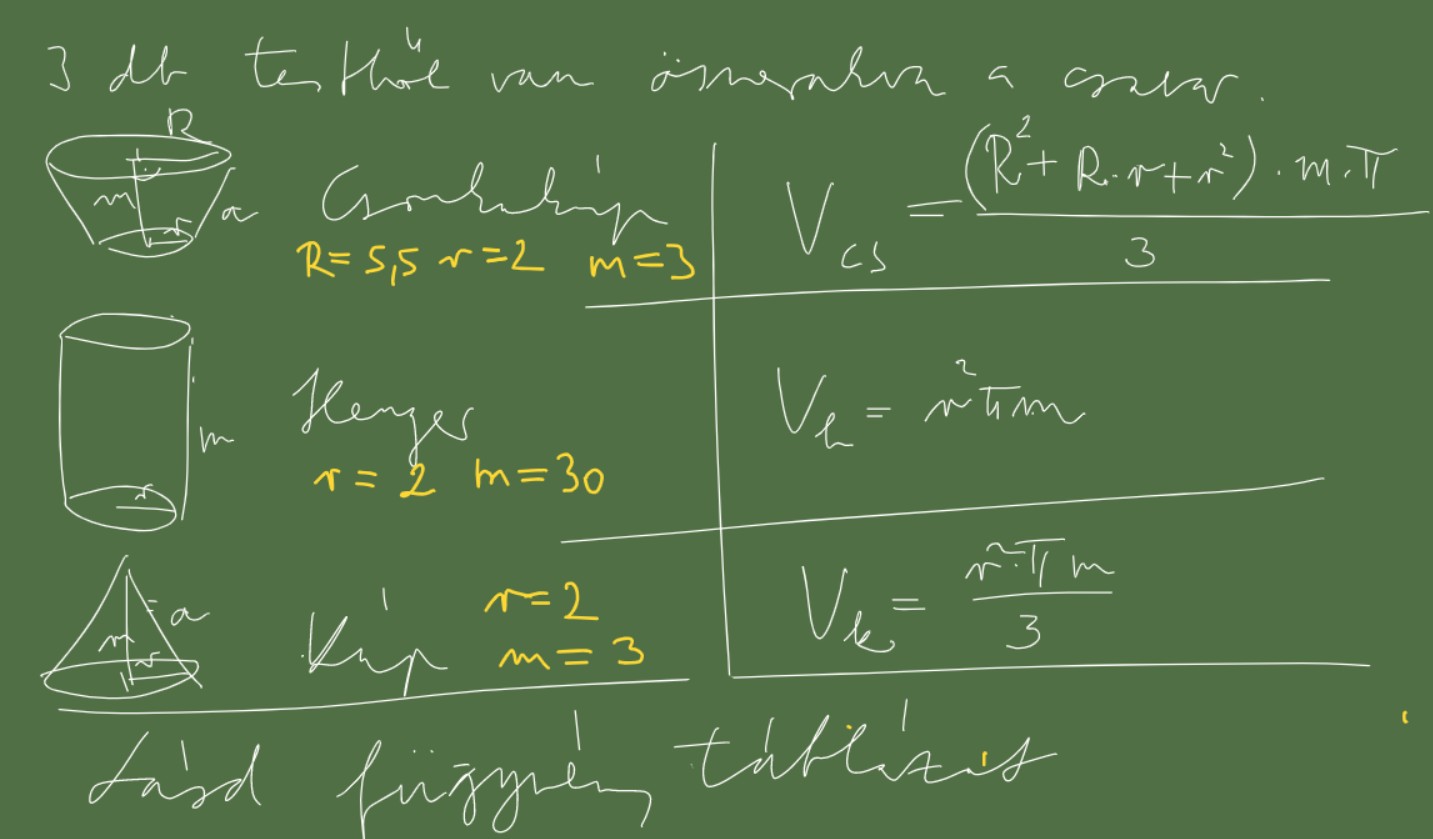 3 db testből van összerakva a csavar.
R
m a r
Csonkakúp
R=5,5 r=2 m=3
V_cs = (R²+R·r+r²)·m·π / 3
m r
Henger
r=2 m=30
V_h = r²πm
a m r
Kúp
r=2
m=3
V_k = r²·π m / 3
Lásd függvény táblázat